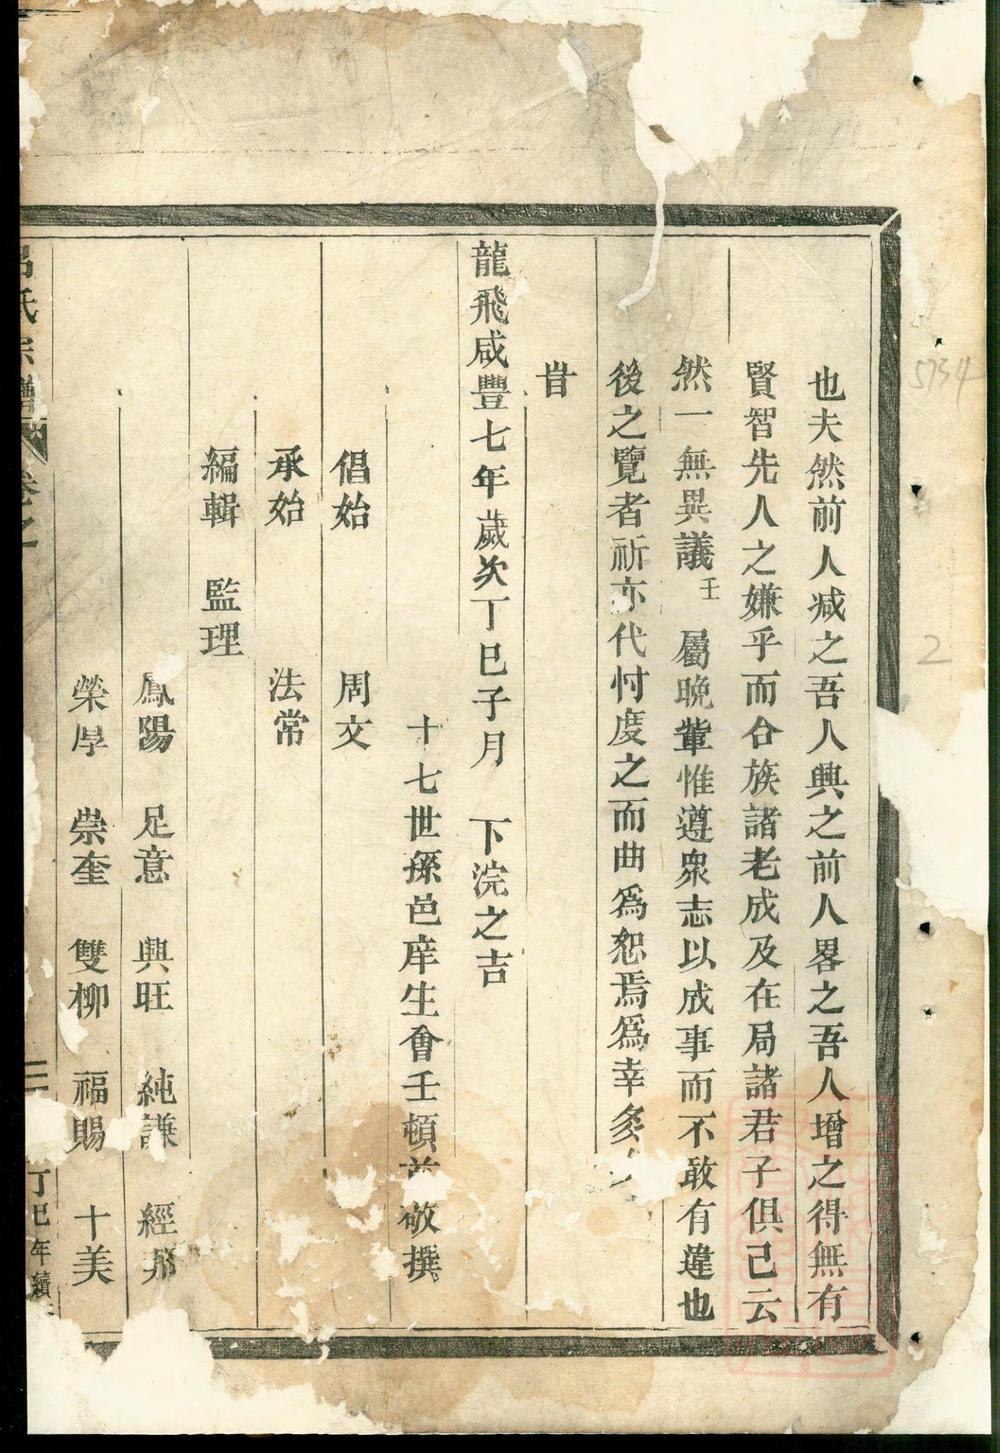 也夫然前人減之吾人興之前人畧之吾人增之得無有
賢智先人之嫌乎而合族諸老成及在局諸君子俱己云
然一無異議壬 屬晚輩惟遵衆志以成事而不敢有違也
後之覽者祈亦代忖度之而曲爲恕焉爲幸多
旹
龍飛咸豐七年歲次丁巳子月 下浣之吉
十七世孫邑庠生會壬頓首敬撰
倡始 周文
承始 法常
編輯 監理
鳳陽 足意 興旺 純謙 經邦
榮厚 崇奎 雙柳 福賜 十美
呂氏宗譜 卷之一 二 丁巳年續
5734
2